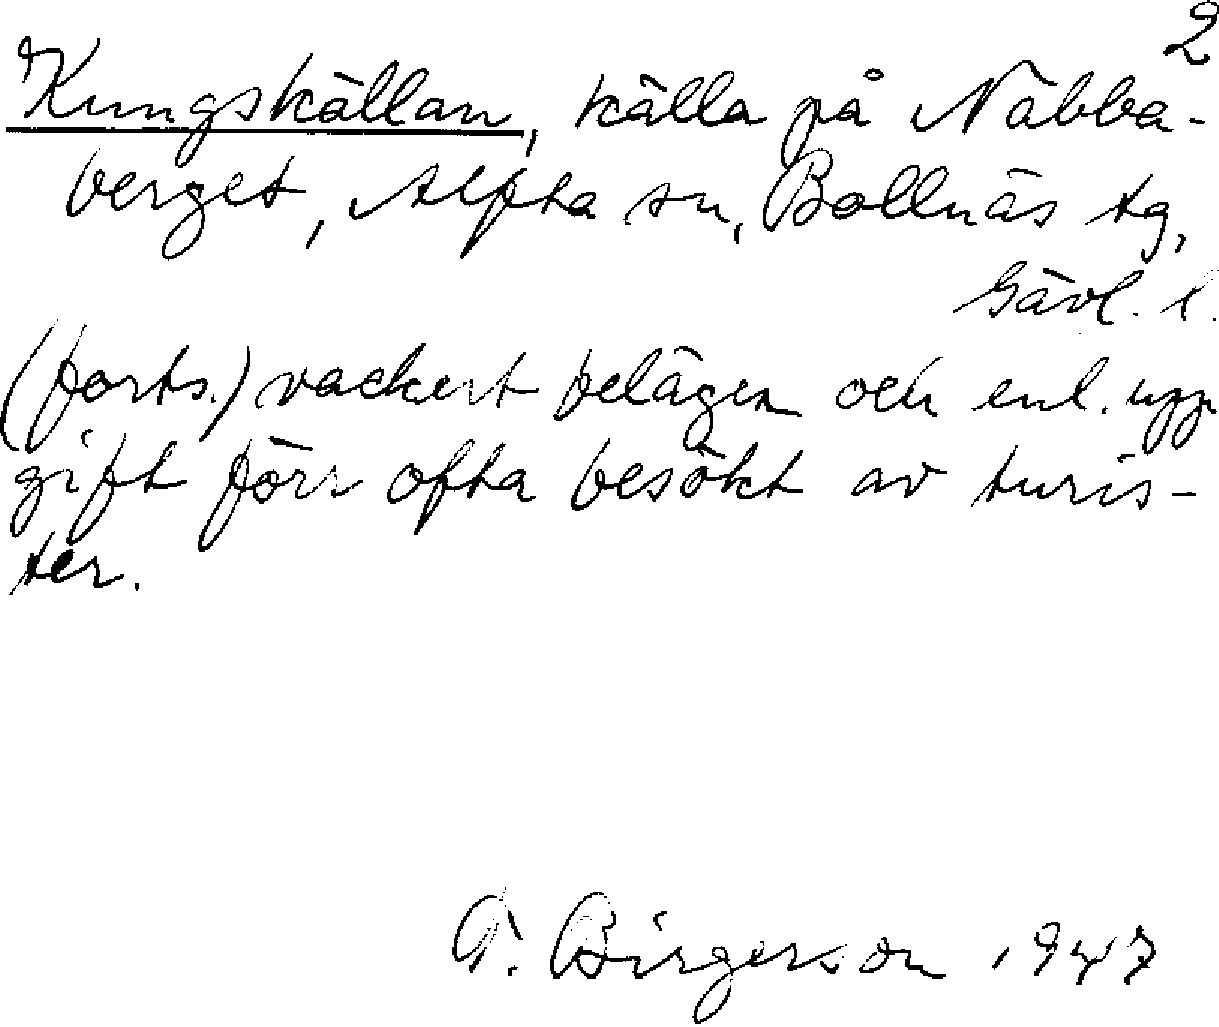 2
Kungskällan, källa på Näbba-
berget, Alfta sn, Bollnäs tg,
Gävl. l.
(forts.) vackert belägen och enl. upp
gift förr ofta besökt av turis-
ter.
T. Birgerson 1947